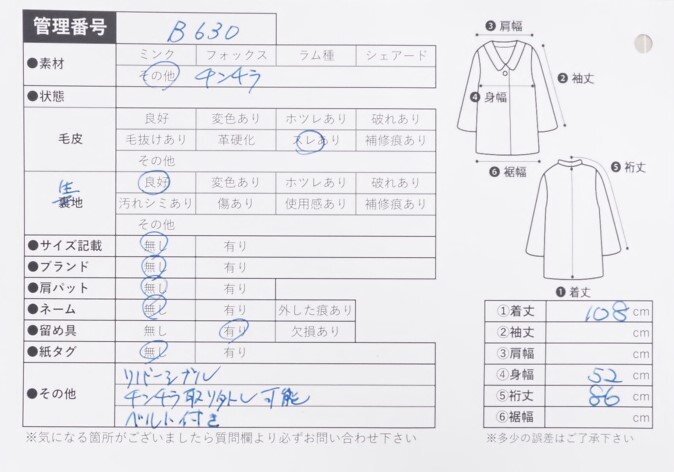 管理番号 B630
●素材 ミンク フォックス ラム種 シェアード
その他 チンチラ
●状態
毛皮 良好 変色あり ホツレあり 破れあり
毛抜けあり 革硬化 スレあり 補修痕あり
その他
生裏地 良好 変色あり ホツレあり 破れあり
汚れシミあり 傷あり 使用感あり 補修痕あり
その他
●サイズ記載 無し 有り
●ブランド 無し 有り
●肩パット 無し 有り
●ネーム 無し 有り 外した痕あり
●留め具 無し 有り 欠損あり
●紙タグ 無し 有り
●その他 リバーシブル
チンチラ取り外し可能
ベルト付き
※気になる箇所がございましたら質問欄より必ずお問い合わせ下さい
❸肩幅
❷袖丈
❹身幅
❻裾幅
❺裄丈
❶着丈
①着丈 108 cm
②袖丈 cm
③肩幅 cm
④身幅 52 cm
⑤裄丈 86 cm
⑥裾幅 cm
※多少の誤差はご了承下さい